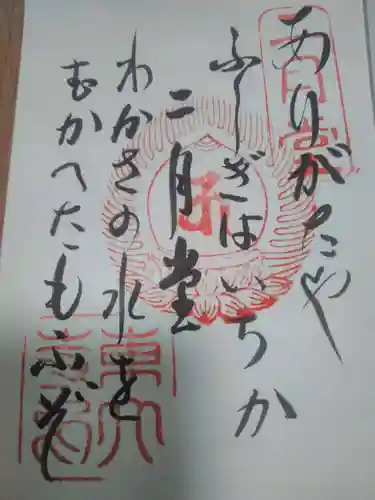 ありがたや
ふしぎはいちか
二月堂
わかさの水を
むかへたもふも
二月堂